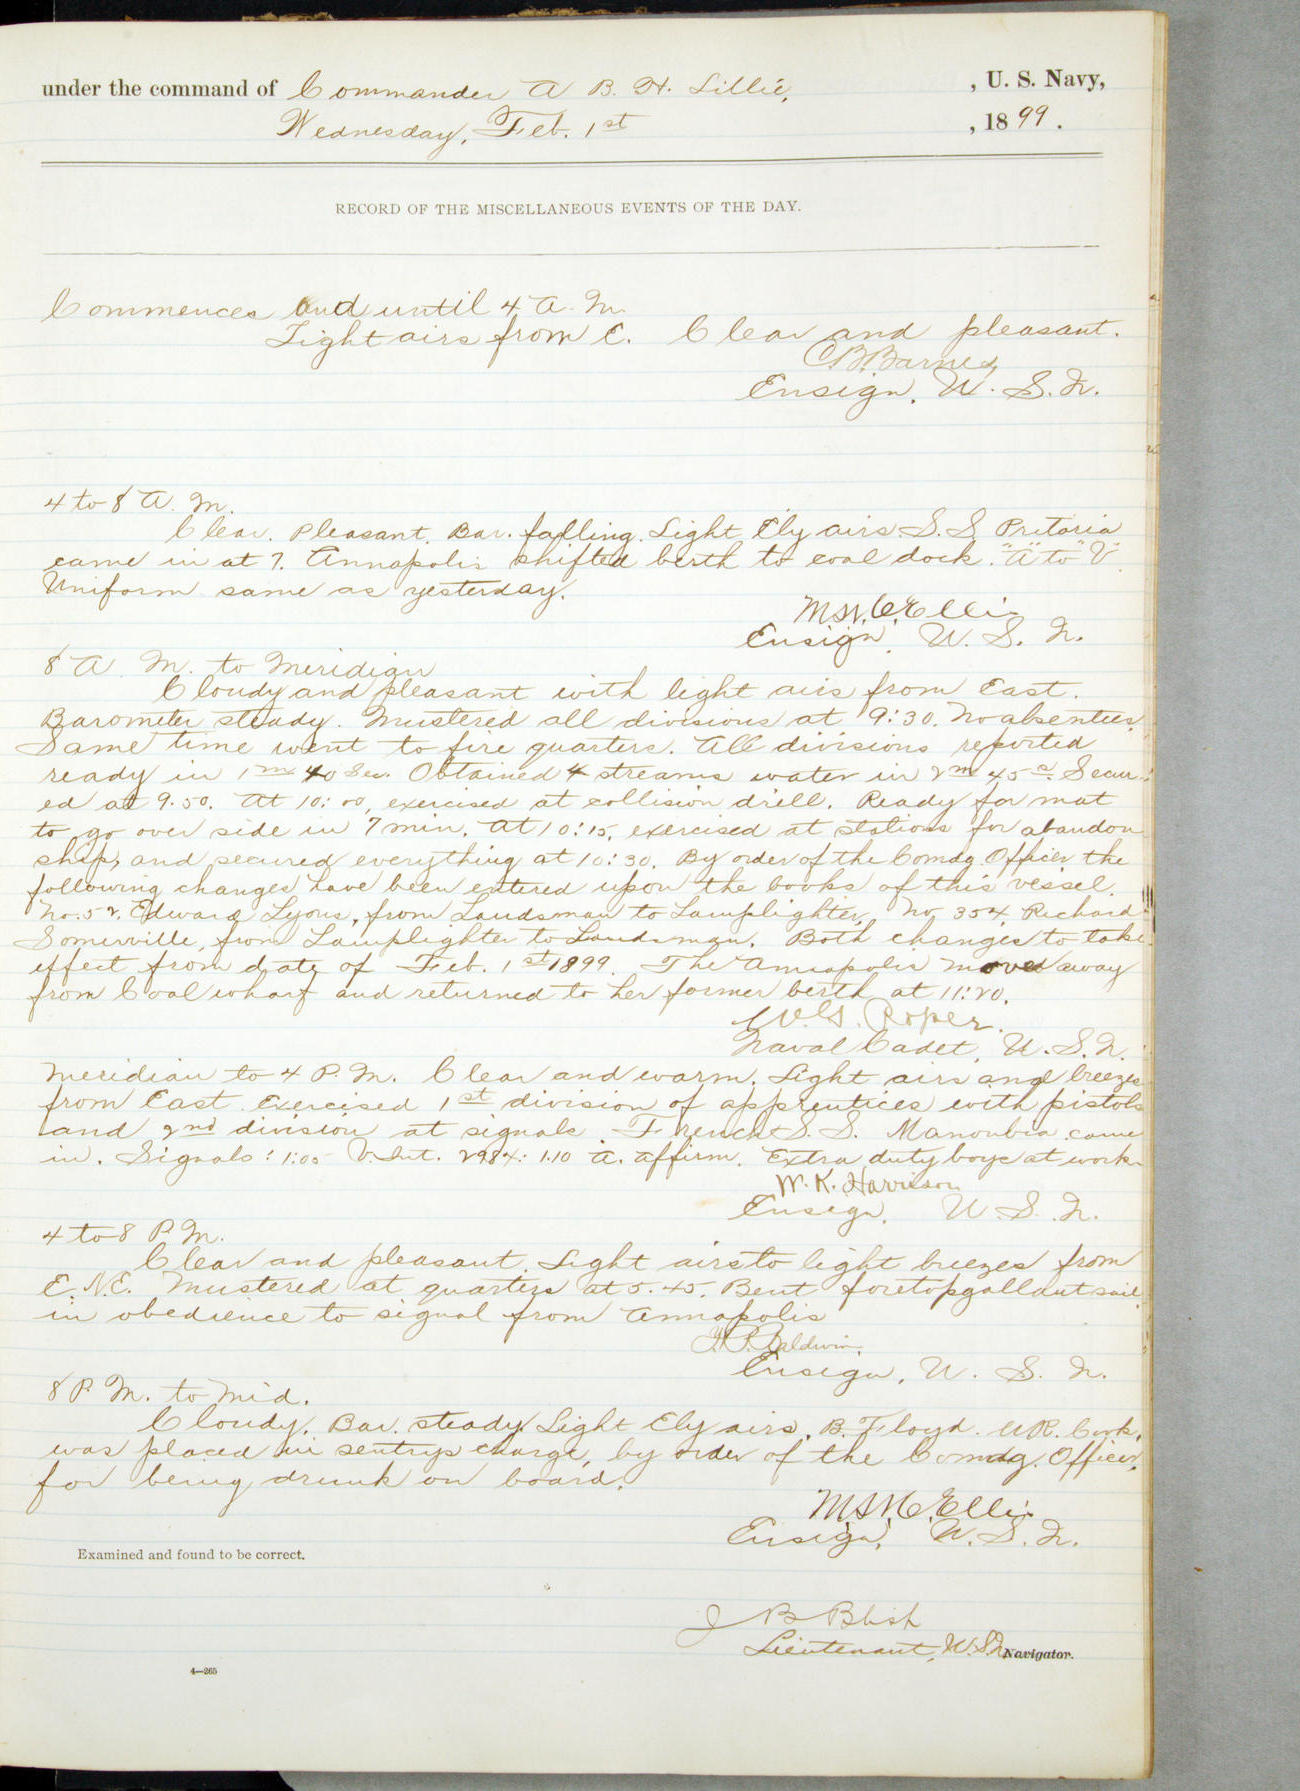 under the command of Commander A B. H. Lillie, , U. S. Navy,
Wednesday, Feb. 1st , 1899.
RECORD OF THE MISCELLANEOUS EVENTS OF THE DAY.
Commences and until 4 A. M.
Light airs from E. Clear and pleasant.
C.B. Barnes
Ensign, U. S. N.
4 to 8 A. M.
Clear. Pleasant. Bar. falling. Light E'ly airs S.S. Pretoria
came in at 7. Annapolis shifted berth to coal dock. "A" to "V".
Uniform same as yesterday.
Ellis
Ensign, U. S. N.
8 A. M. to Meridian
Cloudy and pleasant with light airs from East.
Barometer steady. Mustered all divisions at 9:30. No absentees.
Same time went to fire quarters. All divisions reported
ready in 1m 40 sec. Obtained 4 streams water in 2m 45s. Secur-
ed at 9.50. At 10:00, exercised at collision drill. Ready for mat
to go over side in 7 min. At 10:15, exercised at stations for abandon
ship, and secured everything at 10:30. By order of the Comdg. Officer the
following changes have been entered upon the books of this vessel.
No. 52. Edward Lyons, from Landsman to Lamplighter, No. 354 Richard
Somerville, from Lamplighter to Landsman. Both changes to take
effect from date of Feb. 1st 1899. The Annapolis moved away
from Coal wharf and returned to her former berth at 11:20.
W.G. Roper.
Naval Cadet, U. S. N.
Meridian to 4 P. M. Clear and warm. Light airs and breezes
from East. Exercised 1st division of apprentices with pistols
and 2nd division at signals. French S. S. Manoubia came
in. Signals: 1:05 V. Int. 2984: 1.10 A. affirm. Extra duty boys at work.
W. K. Harrison
Ensign, U. S. N.
4 to 8 P. M.
Clear and pleasant. Light airs to light breezes from
E. N.E. Mustered at quarters at 5.45. Bent foretopgallantsail
in obedience to signal from Annapolis
Baldwin.
Ensign, U. S. N.
8 P. M. to Mid.
Cloudy. Bar. steady. Light E'ly airs. B. Floyd. W.R. Cook.
was placed in sentrys charge, by order of the Comdg. Officer.
for being drunk on board.
Ellis
Ensign, U. S. N.
Examined and found to be correct.
J B Blish
Lieutenant, U.S.N. Navigator.
4—265